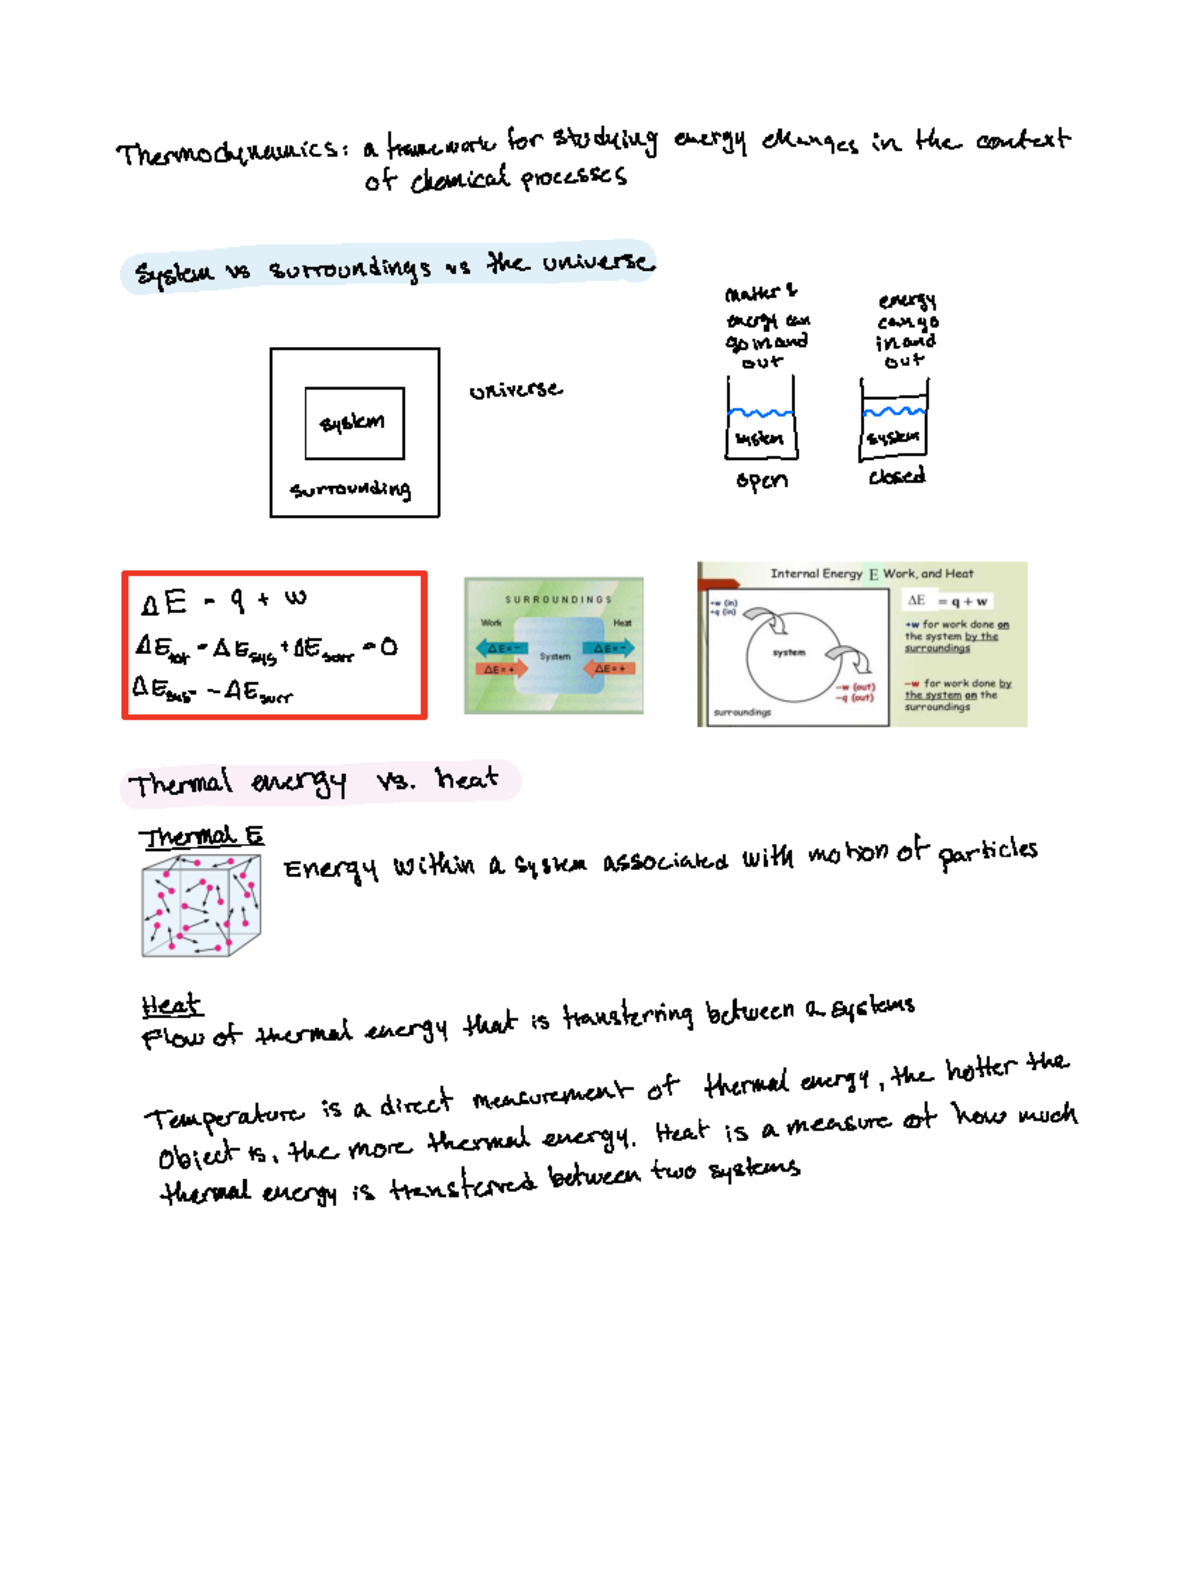 Thermodynamics: a framework for studying energy changes in the context
of chemical processes
System vs surroundings vs the universe
system
surrounding
universe
matter &
energy can
go in and
out
system
open
energy
can go
in and
out
system
closed
ΔE = q + w
ΔEtot = ΔEsys + ΔEsurr = 0
ΔEsys = -ΔEsurr
SURROUNDINGS
Work Heat
ΔE = - ΔE = -
System
ΔE = + ΔE = +
Internal Energy E Work, and Heat
+w (in)
+q (in)
system
-w (out)
-q (out)
surroundings
ΔE = q + w
+w for work done on
the system by the
surroundings
-w for work done by
the system on the
surroundings
Thermal energy vs. heat
Thermal E
Energy within a system associated with motion of particles
Heat
Flow of thermal energy that is transferring between 2 systems
Temperature is a direct measurement of thermal energy, the hotter the
object is, the more thermal energy. Heat is a measure of how much
thermal energy is transferred between two systems